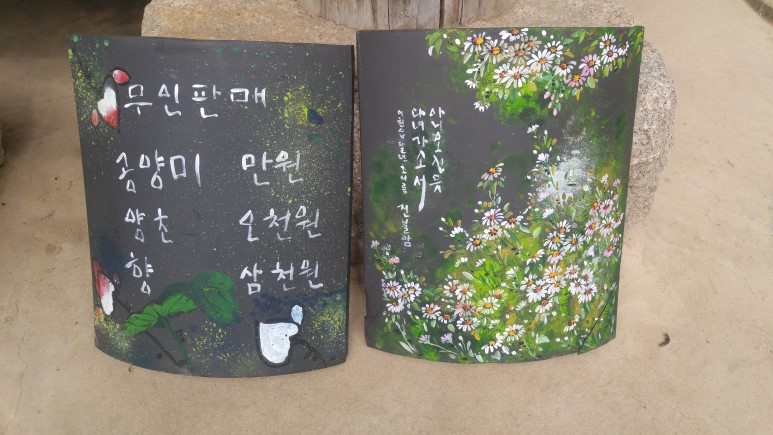 무인판매
공양미 만원
양초 오천원
향 삼천원
아니온듯
다녀가소서